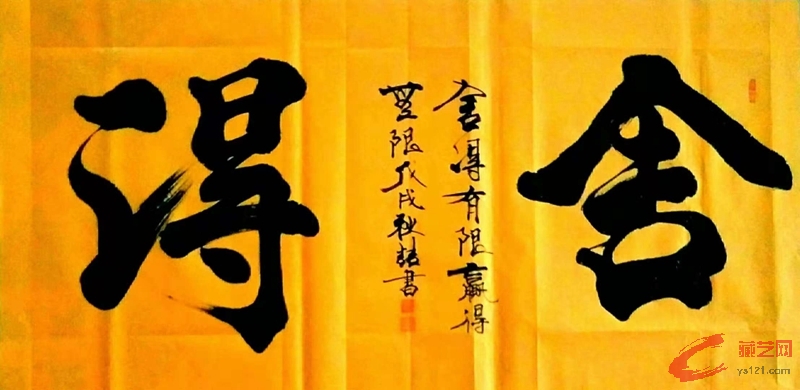 舍得
舍得有限赢得
無限戊戌秋喆書
藏艺网
ys121.com